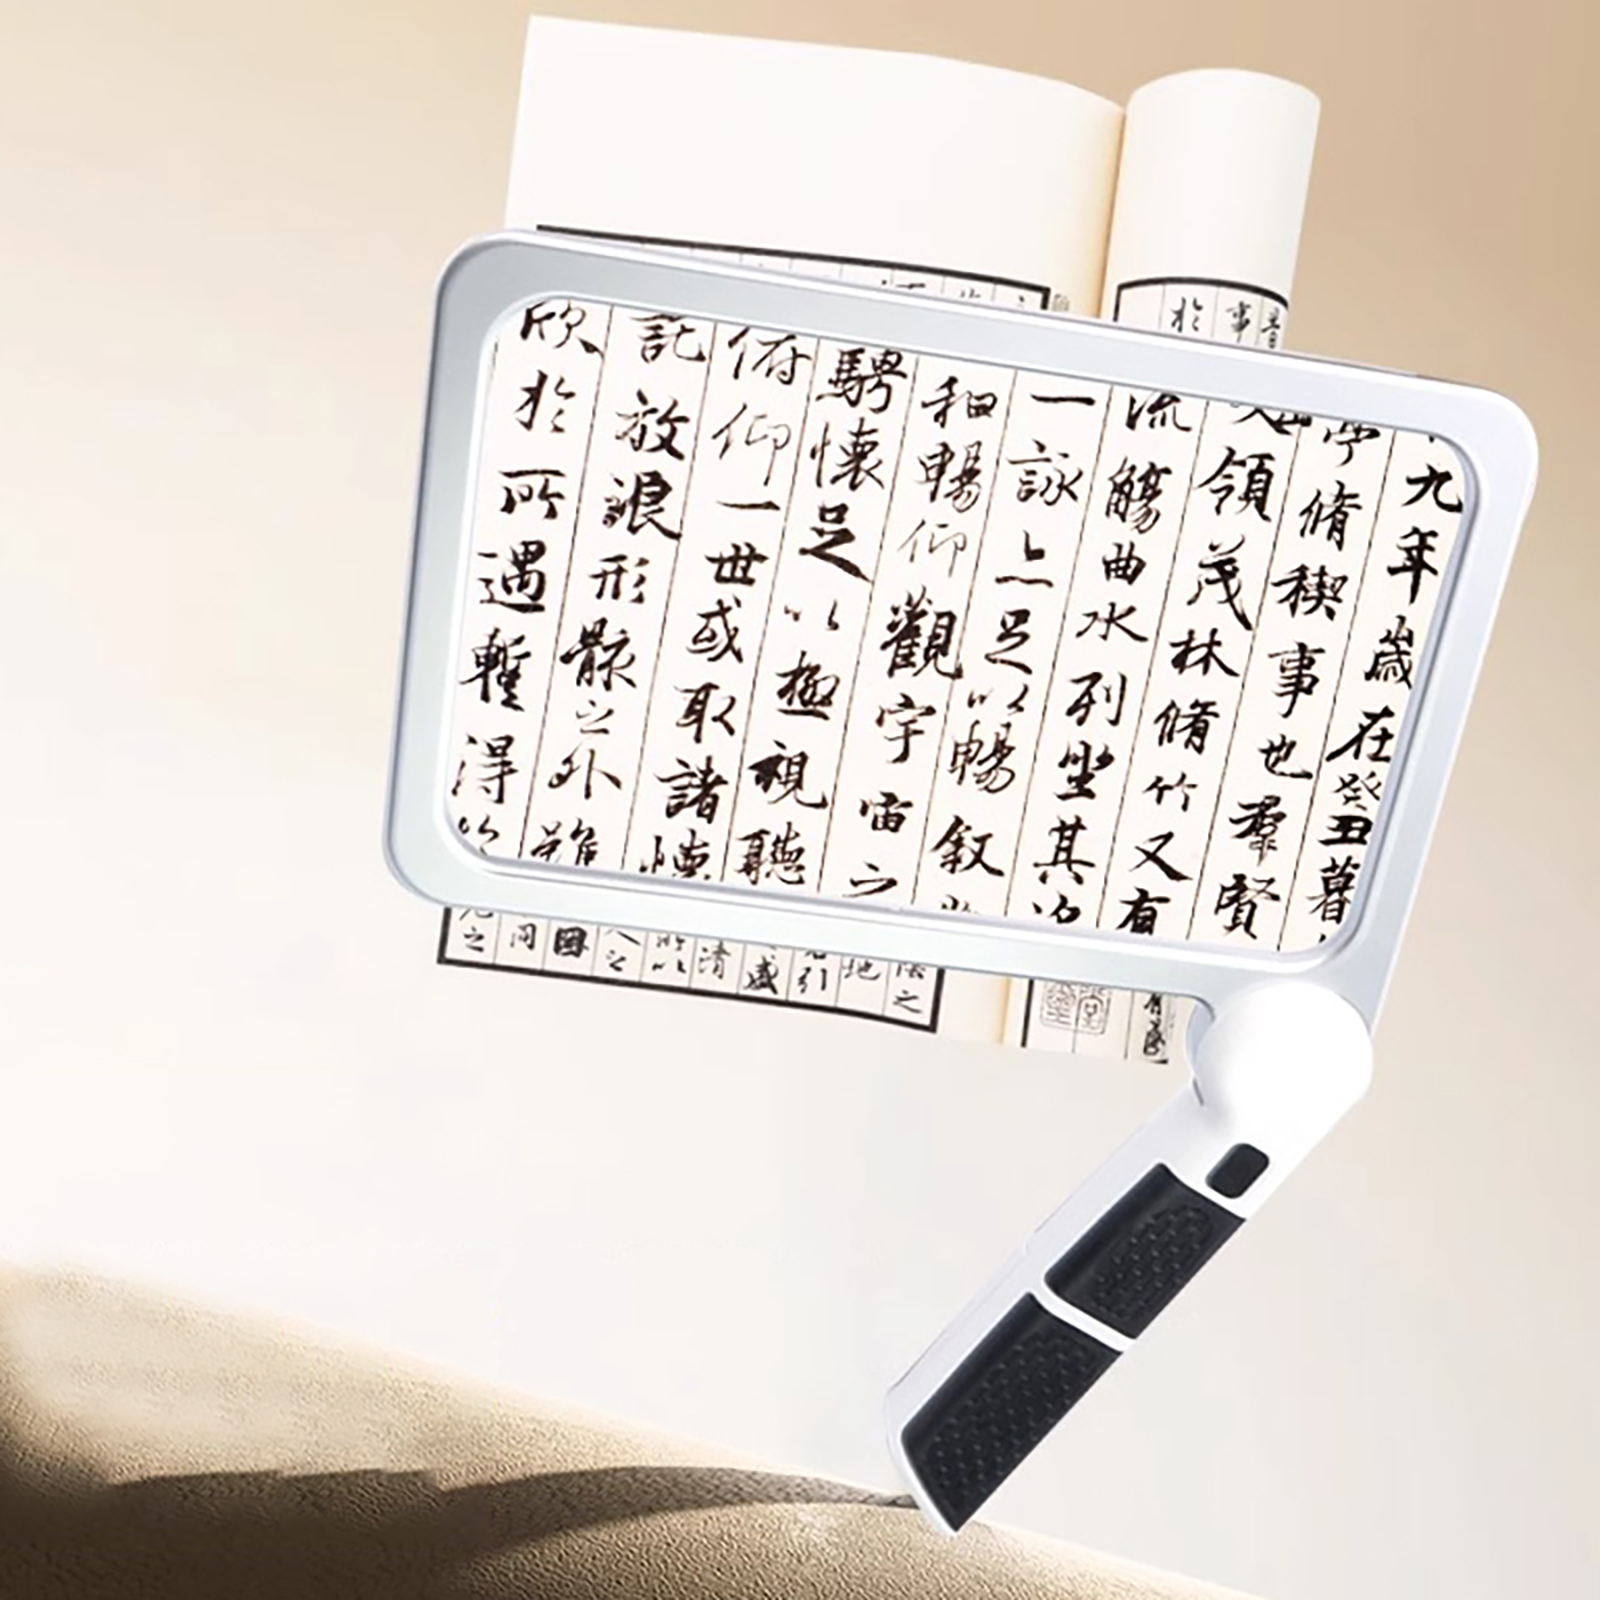 九年歲在癸丑暮
亭脩稧事也羣賢
領茂林脩竹又有
流觴曲水列坐其次
一詠亦足以暢敘
和暢仰觀宇宙之
騁懷足以極視聽
俯仰一世或取諸懷
託放浪形骸之外雖
欣於所遇暫得
事
於
之
同
清
盛
引
地
之